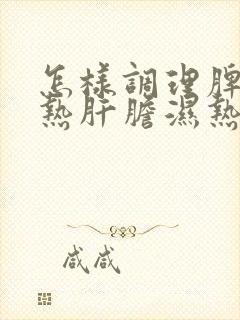 怎樣調理脾
熱肝膽濕熱
咸咸